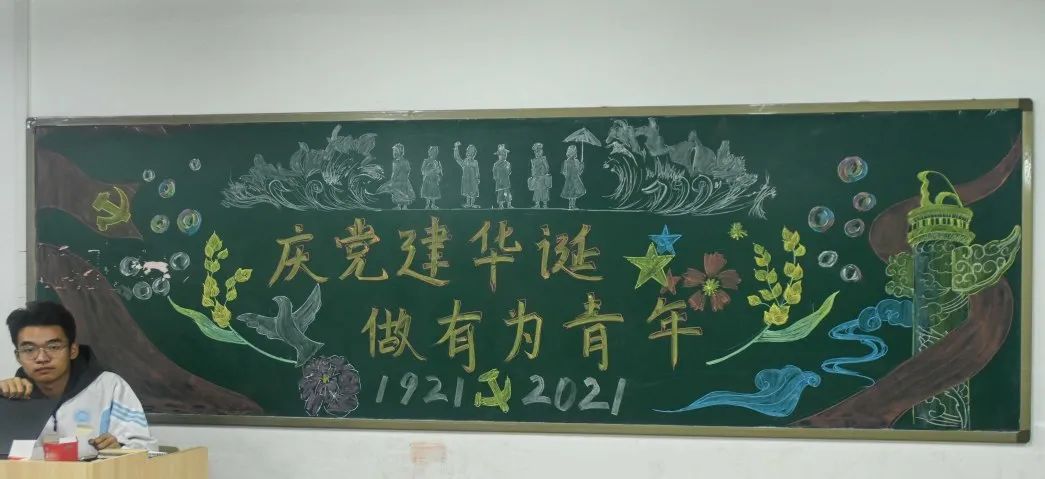 庆党建华诞
做有为青年
1921 2021